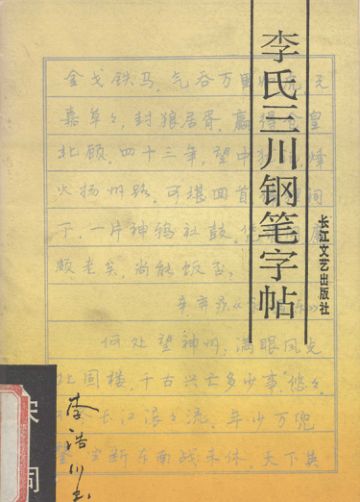 李氏三川钢笔字帖
长江文艺出版社
金戈铁马,气吞万里 元
嘉草々,封狼居胥,赢得仓皇
北顾。四十三年,望中 烽
火扬州路。可堪回首 祠
下,一片神鸦社鼓。 廉
颇老矣,尚能饭否?
辛弃疾《 乐》
何处望神州,满眼风光
北固楼。千古兴亡多少事?悠々。
长江滚々流。年少万兜
坐断东南战未休。天下英
李浩川书
宋词